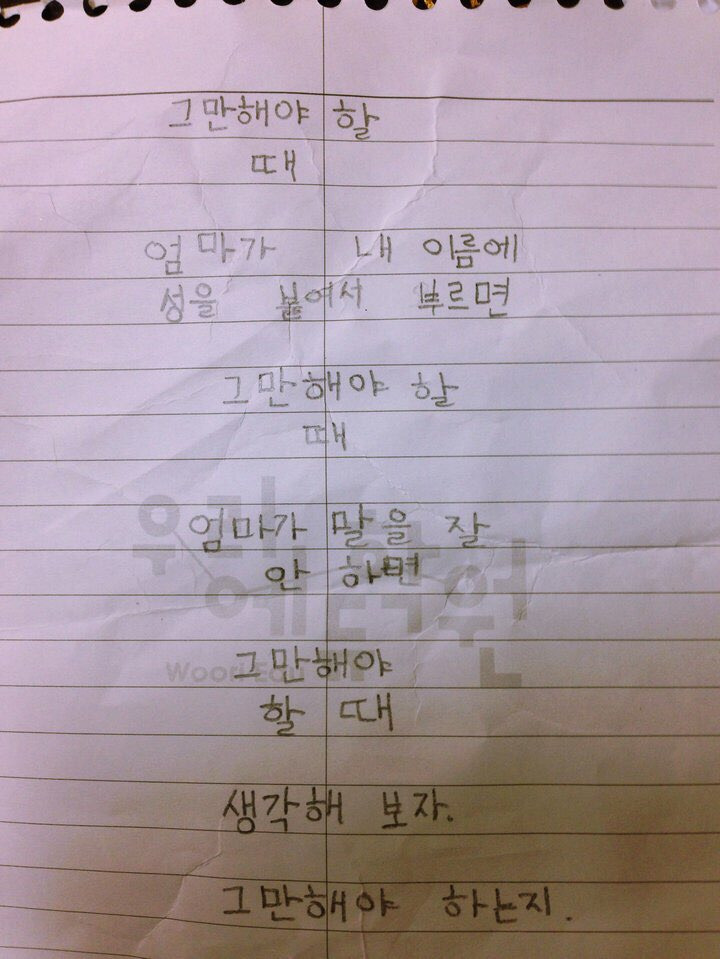 그만해야 할
때
엄마가 내 이름에
성을 붙여서 부르면
그만해야 할
때
엄마가 말을 잘
안 하면
그만해야
할 때
생각해 보자.
그만해야 하는지.
우리
에듀학원
Woori Edu